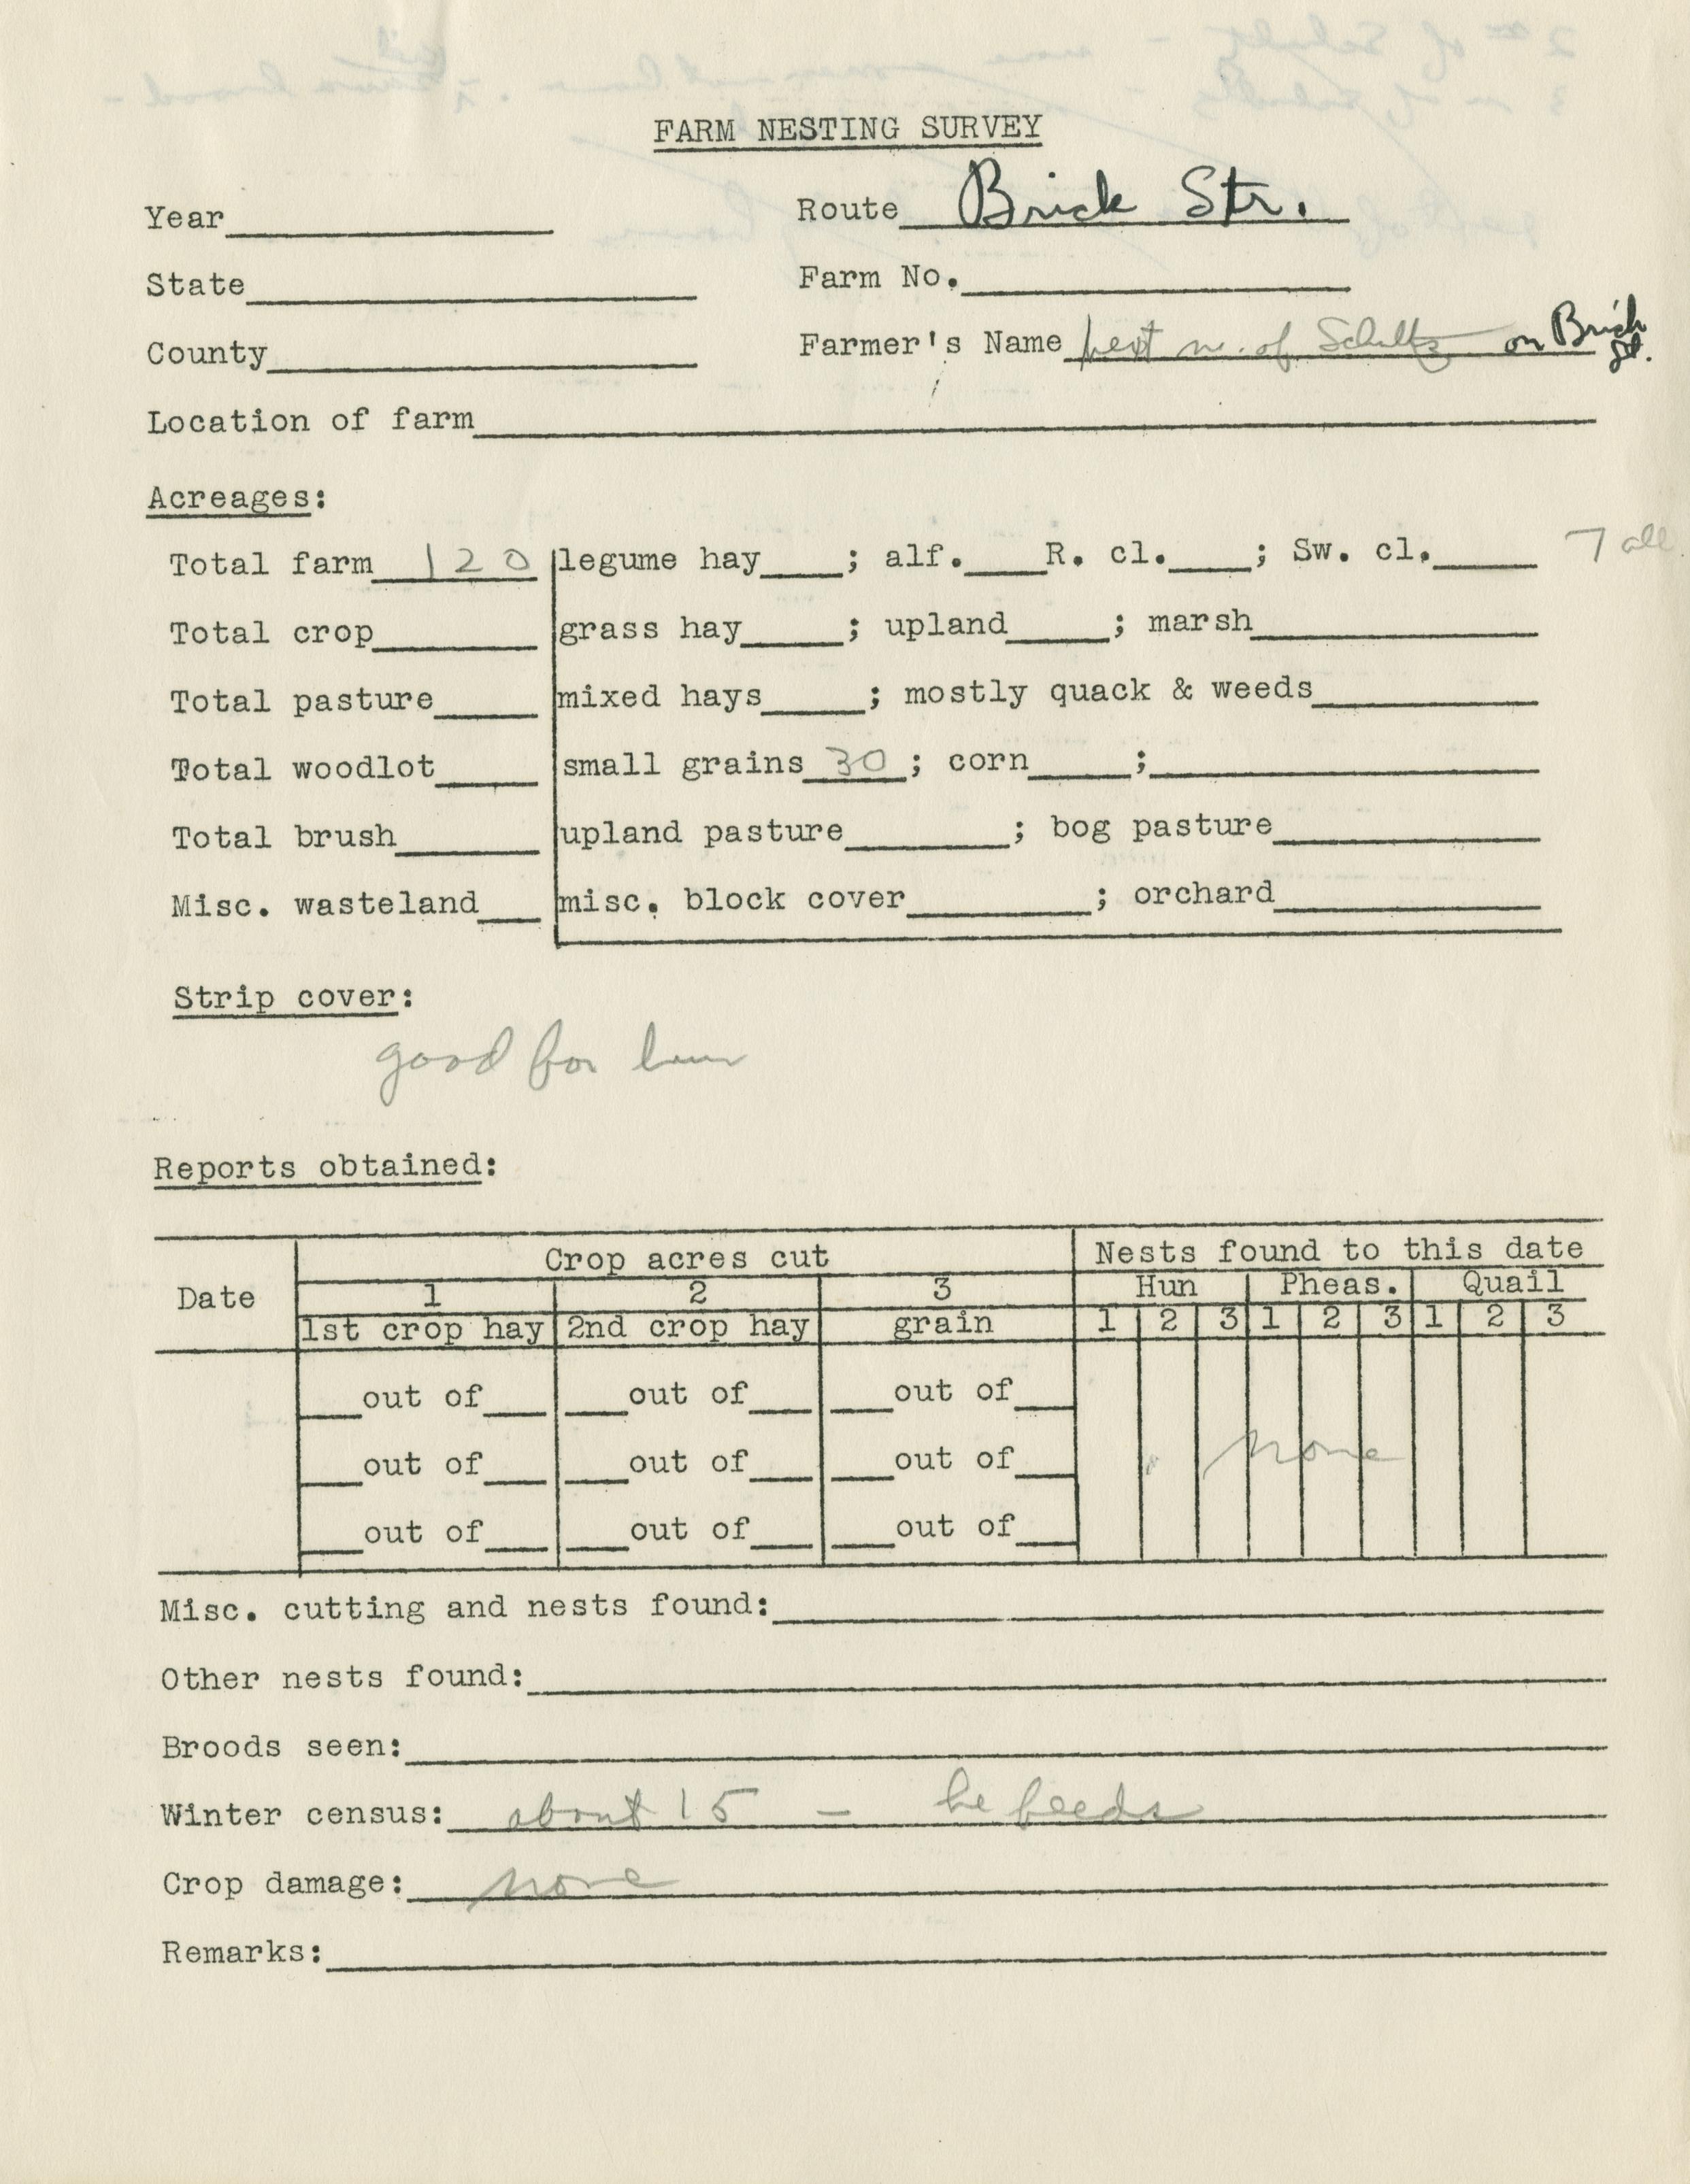 FARM NESTING SURVEY
Year____ Route Brick Str.
State____ Farm No.____
County____ Farmer's Name next n. of Schultz on Brick St.
Location of farm____
Acreages:
Total farm 120 legume hay____; alf.____R. cl.____; Sw. cl.____ 7 all
Total crop____ grass hay____; upland____; marsh____
Total pasture____ mixed hays____; mostly quack & weeds____
Total woodlot____ small grains 30; corn____;____
Total brush____ upland pasture____; bog pasture____
Misc. wasteland____ misc. block cover____; orchard____
Strip cover:
good for
Reports obtained:
Crop acres cut Nests found to this date
Date 1 2 3 Hun Pheas. Quail
1st crop hay 2nd crop hay grain 1 2 3 1 2 3 1 2 3
___out of___ ___out of___ ___out of___
___out of___ ___out of___ ___out of___ none
___out of___ ___out of___ ___out of___
Misc. cutting and nests found:____
Other nests found:____
Broods seen:____
Winter census: about 15 - he feeds
Crop damage: none
Remarks:____